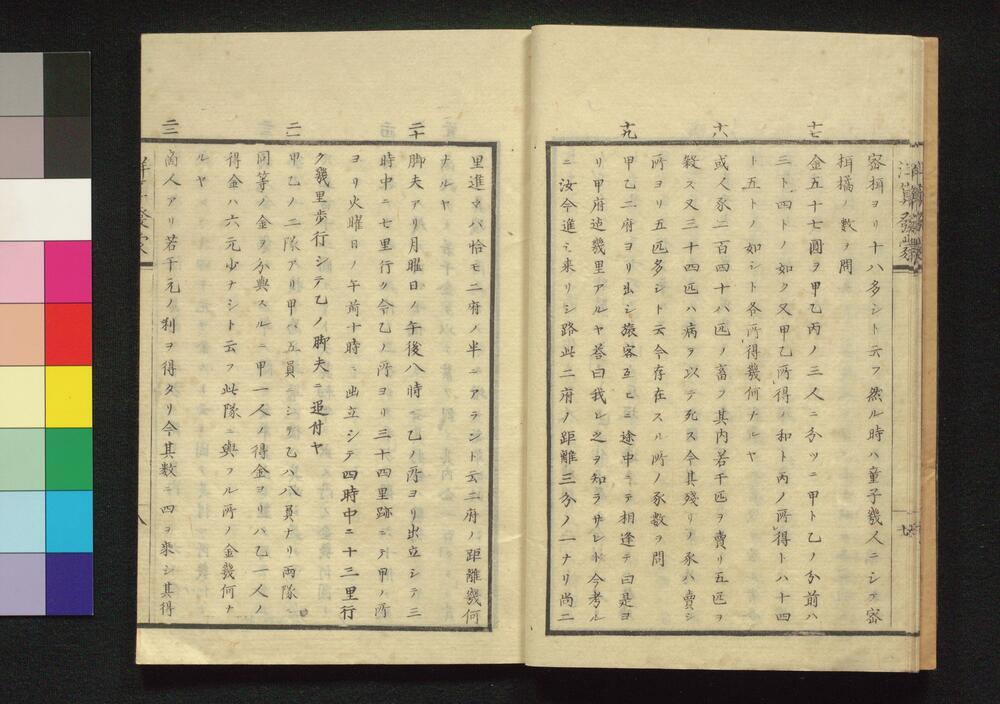 密柑ヨリ十八多シト云フ然ル時ハ童子幾人ニシテ密
柑橘ノ數ヲ問
十七
金五十七圓ヲ甲乙丙ノ三人ニ分ツニ甲ト乙ノ分前ハ
三ト四トノ如ク又甲乙所得ノ和ト丙ノ所得トハ十四
ト五トノ如シト各所得幾何ナルヤ
十八
或人豕二百四十八匹ノ畜フ其内若干匹ヲ賣リ五匹ヲ
殺ス又三十四匹ハ病ヲ以テ死ス今其殘リノ豕ハ賣シ
所ヨリ五匹多シト云今存在スル所ノ豕數ヲ問
十九
甲乙二府ヨリ出シ旅客互ヒニ途中ニテ相逢テ曰是ヨ
リ甲府迠幾里アルヤ荅曰我レ之ヲ知ラザレト今考ル
ニ汝今進ミ来リシ路此二府ノ距離三分ノ一ナリ尚二
洋算發蒙
里進マバ恰モ二府ノ半ニアラント云二府ノ距離幾何
ナルヤ
二十
脚夫アリ月曜日ノ午後八時ニ乙ノ所ヨリ出立シテ三
時中ニ七里行ク今乙ノ所ヨリ三十四里跡ニテ甲ノ所
ヨリ火曜日ノ午前十時ニ出立シテ四時中ニ十三里行
ク幾里歩行シテ乙ノ脚夫ニ追付ヤ
二一
甲乙ノ二隊アリ甲ハ五員ニシテ乙ハ八員ナリ両隊ニ
同等ノ金ヲ分與スルニ甲一人ノ得金ヨリハ乙一人ノ
得金ハ六元少ナシト云フ此隊ニ與フル所ノ金幾何ナ
ルヤ
二二
商人アリ若干元ノ利ヲ得タリ今其数ニ四ヲ乘シ其得
八